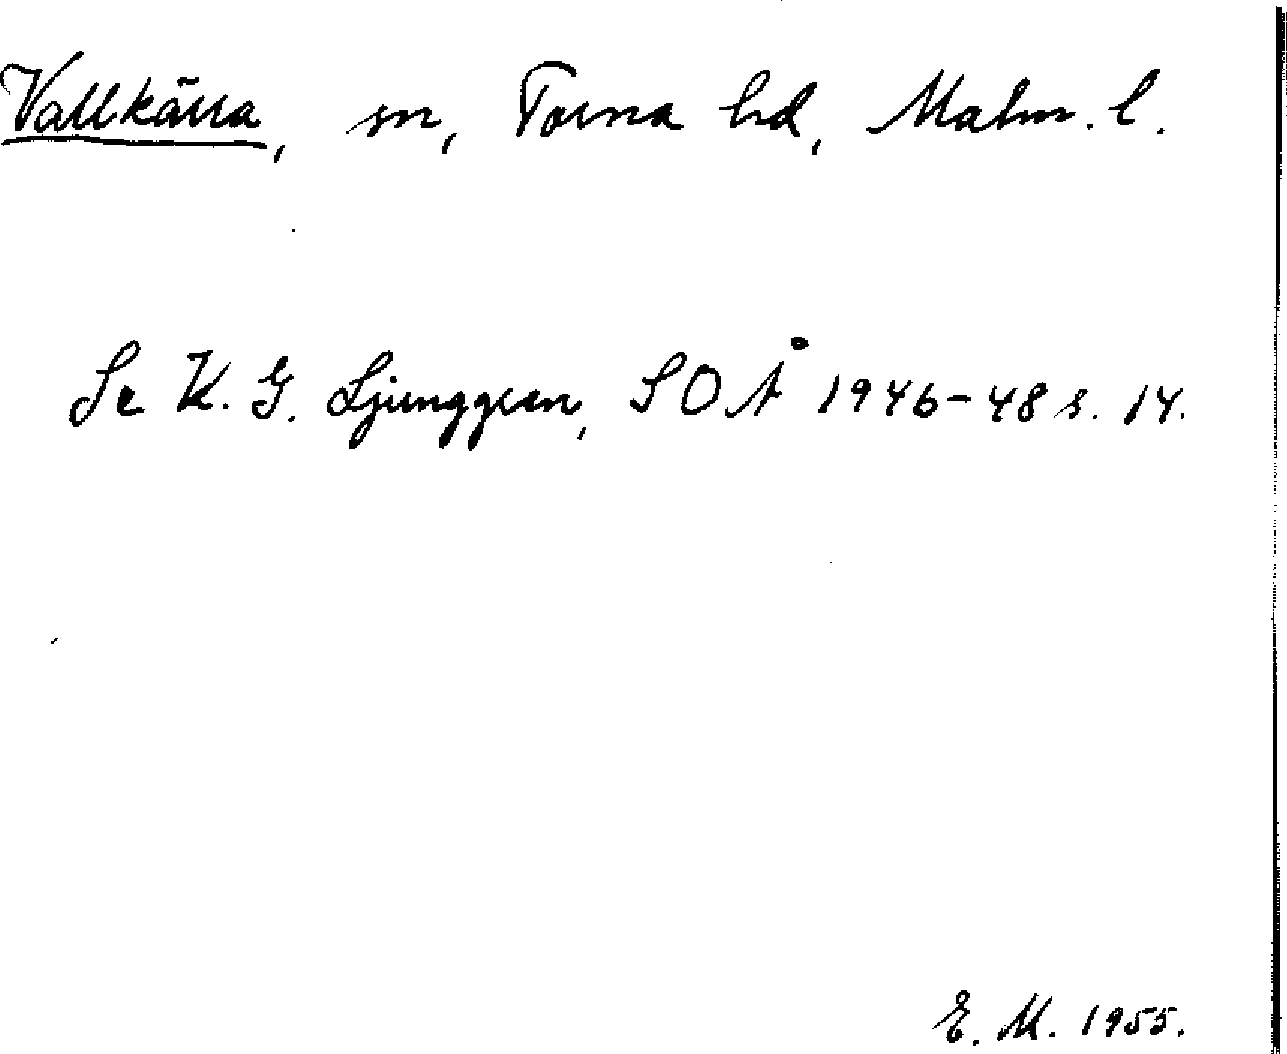 Vallkärra, sn, Torna hd, Malm. l.
Se K. G. Ljunggren, SOÅ 1946-48 s. 14.
E. M. 1955.